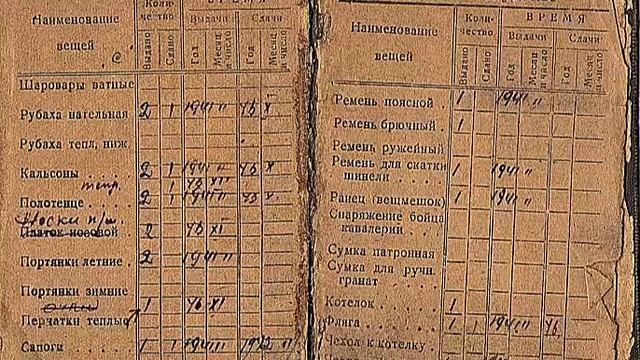 Наименование вещей
Коли-
чество
ВРЕМЯ
Выдачи
Сдачи
Выдано
Сдано
Год
Месяц и число
Год
Месяц и число
Шаровары ватные
Рубаха нательная 2 1 1941 11 43 X
Рубаха тепл. ниж.
Кальсоны 2 1 1941 11 43 X
Полотенце 2 1 1941 11 43 X
Платок носовой 2 43 XI
Портянки летние 2 1941 11
Портянки зимние
Перчатки теплые 1 XI
Сапоги 1 1 1941 11
Наименование вещей
Коли-
чество
ВРЕМЯ
Выдачи
Сдачи
Выдано
Сдано
Год
Месяц и число
Год
Месяц и число
Ремень поясной 1 1941 11
Ремень брючный 1
Ремень ружейный
Ремень для скатки
шинели 1 1941 11
Ранец (вещмешок) 1 1941 11
Снаряжение бойца
кавалерии
Сумка патронная
Сумка для ручн.
гранат
Котелок 1
Фляга 1 1 1941 11
Чехол к котелку